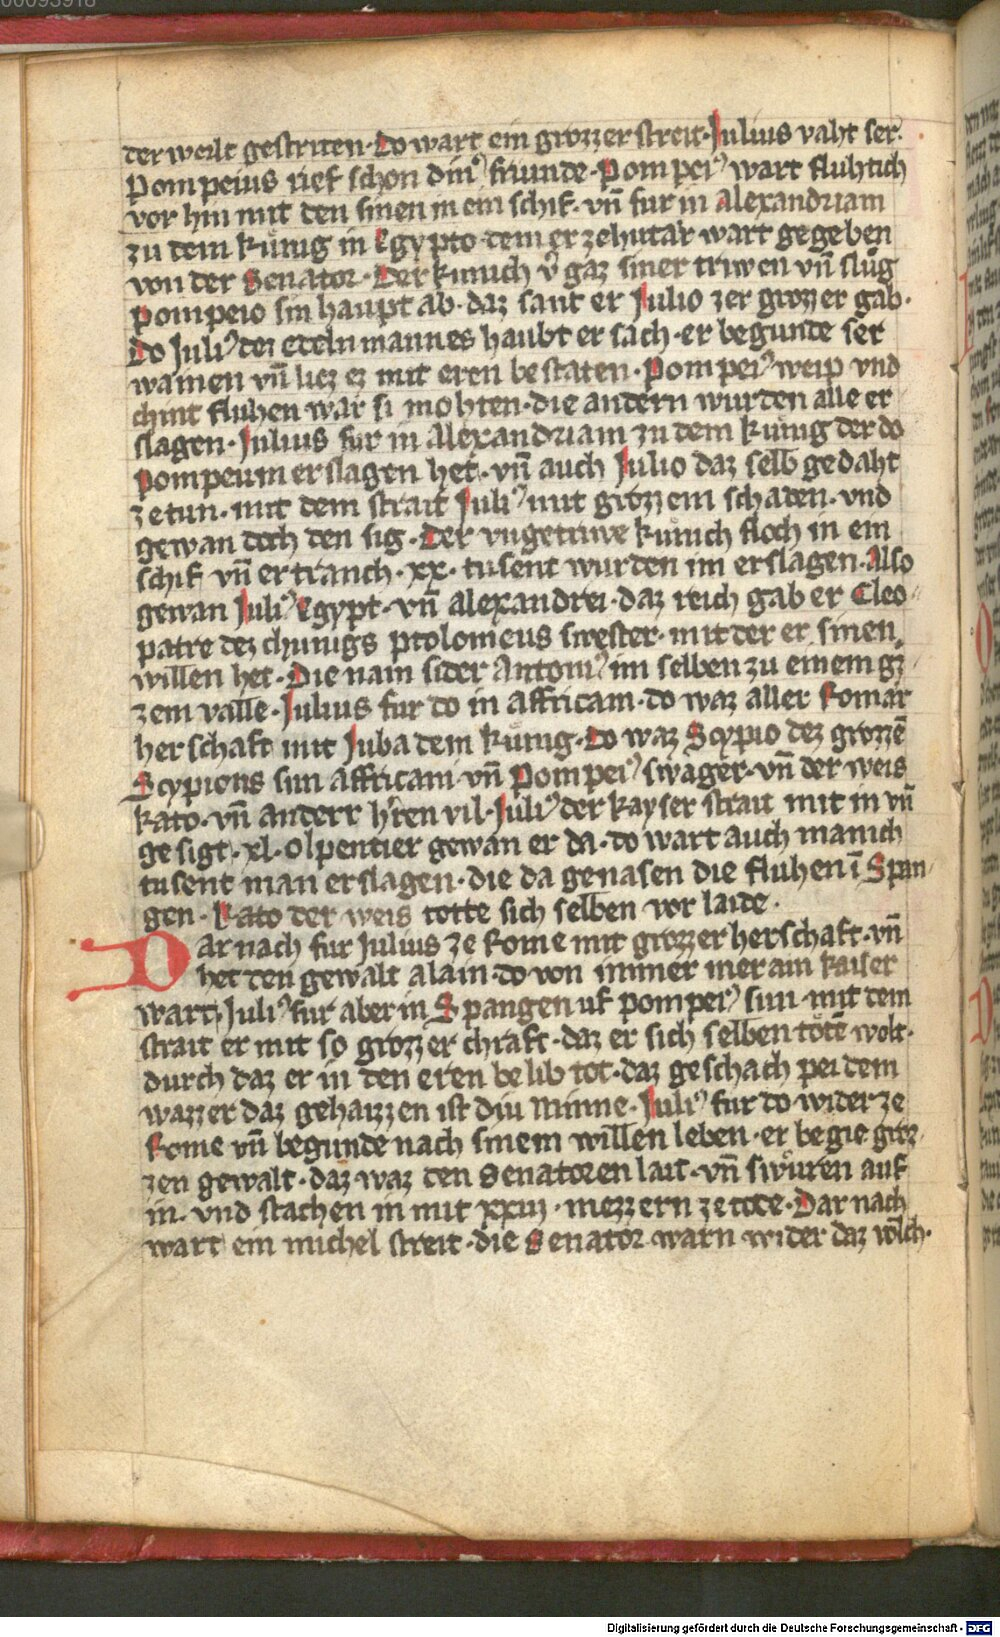 der werlt gestriten · Do wart ein grozzer streit · Julius vaht ser ·
Pompeius rief schon diner friunde · Pompeiꝰ wart fluhtich
vor hin mit den sinen in ein schif · vn̄ fur in Alexandriam
zu dem kuͤnig in Egypto dem er ze hutær wart gegeben
von der Senator · Der kunich vgaz siner triwen vn̄ slug
Pompeio sin haupt ab · daz sant er Julio zer grozzer gab ·
Do Juliꝰ dez edeln mannes haubt er sach · er begunde ser
wainen vn̄ liez ez mit eren bestaten · Pompeiꝰ weip vnd
chint fluhen war si mohten · die andern wurden alle er
slagen · Julius fur in Alexandriam zu dem kuͤnig der do
Pompeium erslagen het · vn̄ auch Julio daz selb gedaht
ze tun · mit dem strait Juliꝰ mit grozzem schaden · vnd
gewan doch den sig · Der vngetriwe kuͤnich floch in ein
schif vn̄ ertranch · xx · tusent wurden im erslagen · Also
gewan Juliꝰ Egypt · vn̄ alexandrei · daz reich gab er Cleo
patre dez chunigs ptolomeus swester · mit der er sinen
willen het · Die nam sider Antoniꝰ im selben zu einem gꝛ
zem valle · Julius fur do in Affricam · do waz aller Romær
herschaft mit Juba dem kuͤnig · Do waz Scypio dez grozzē
Scypions sun Affricani vn̄ Pompeiꝰ swager · vn̄ der weis
kato · vn̄ anderr hʼren vil · Juliꝰ der kayser strait mit in vn̄
gesigt · xl · olpentier gewan er da · do wart auch manich
tusent man erslagen · die da genasen die fluhen ī Span
gen · Kato der weis totte sich selben vor laide ·
Dar nach fur Julius ze Rome mit grozzer herschaft · vn̄
het den gewalt alain · do von immer mer ain kaiser
wart · Juliꝰ fur aber in Spangen uf pompeiꝰ sun · mit dem
strait er mit so grozzer chraft · daz er sich selben tötē wolt ·
durch daz er in den eren belib tot · daz geschach pei dem
wazzer daz gehaizzen ist diu Minne · Juliꝰ fur do wider ze
Rome vn̄ begunde nach sinem willen leben · er begie groz
zen gewalt · daz waz den Senatoren lait · vn̄ swuͤren auf
in · vnd stachen in mit xxiij · mezzern ze tode · Dar nach
wart ein michel streit · die Senator warn wider daz volch ·
Digitalisierung gefördert durch die Deutsche Forschungsgemeinschaft - DFG